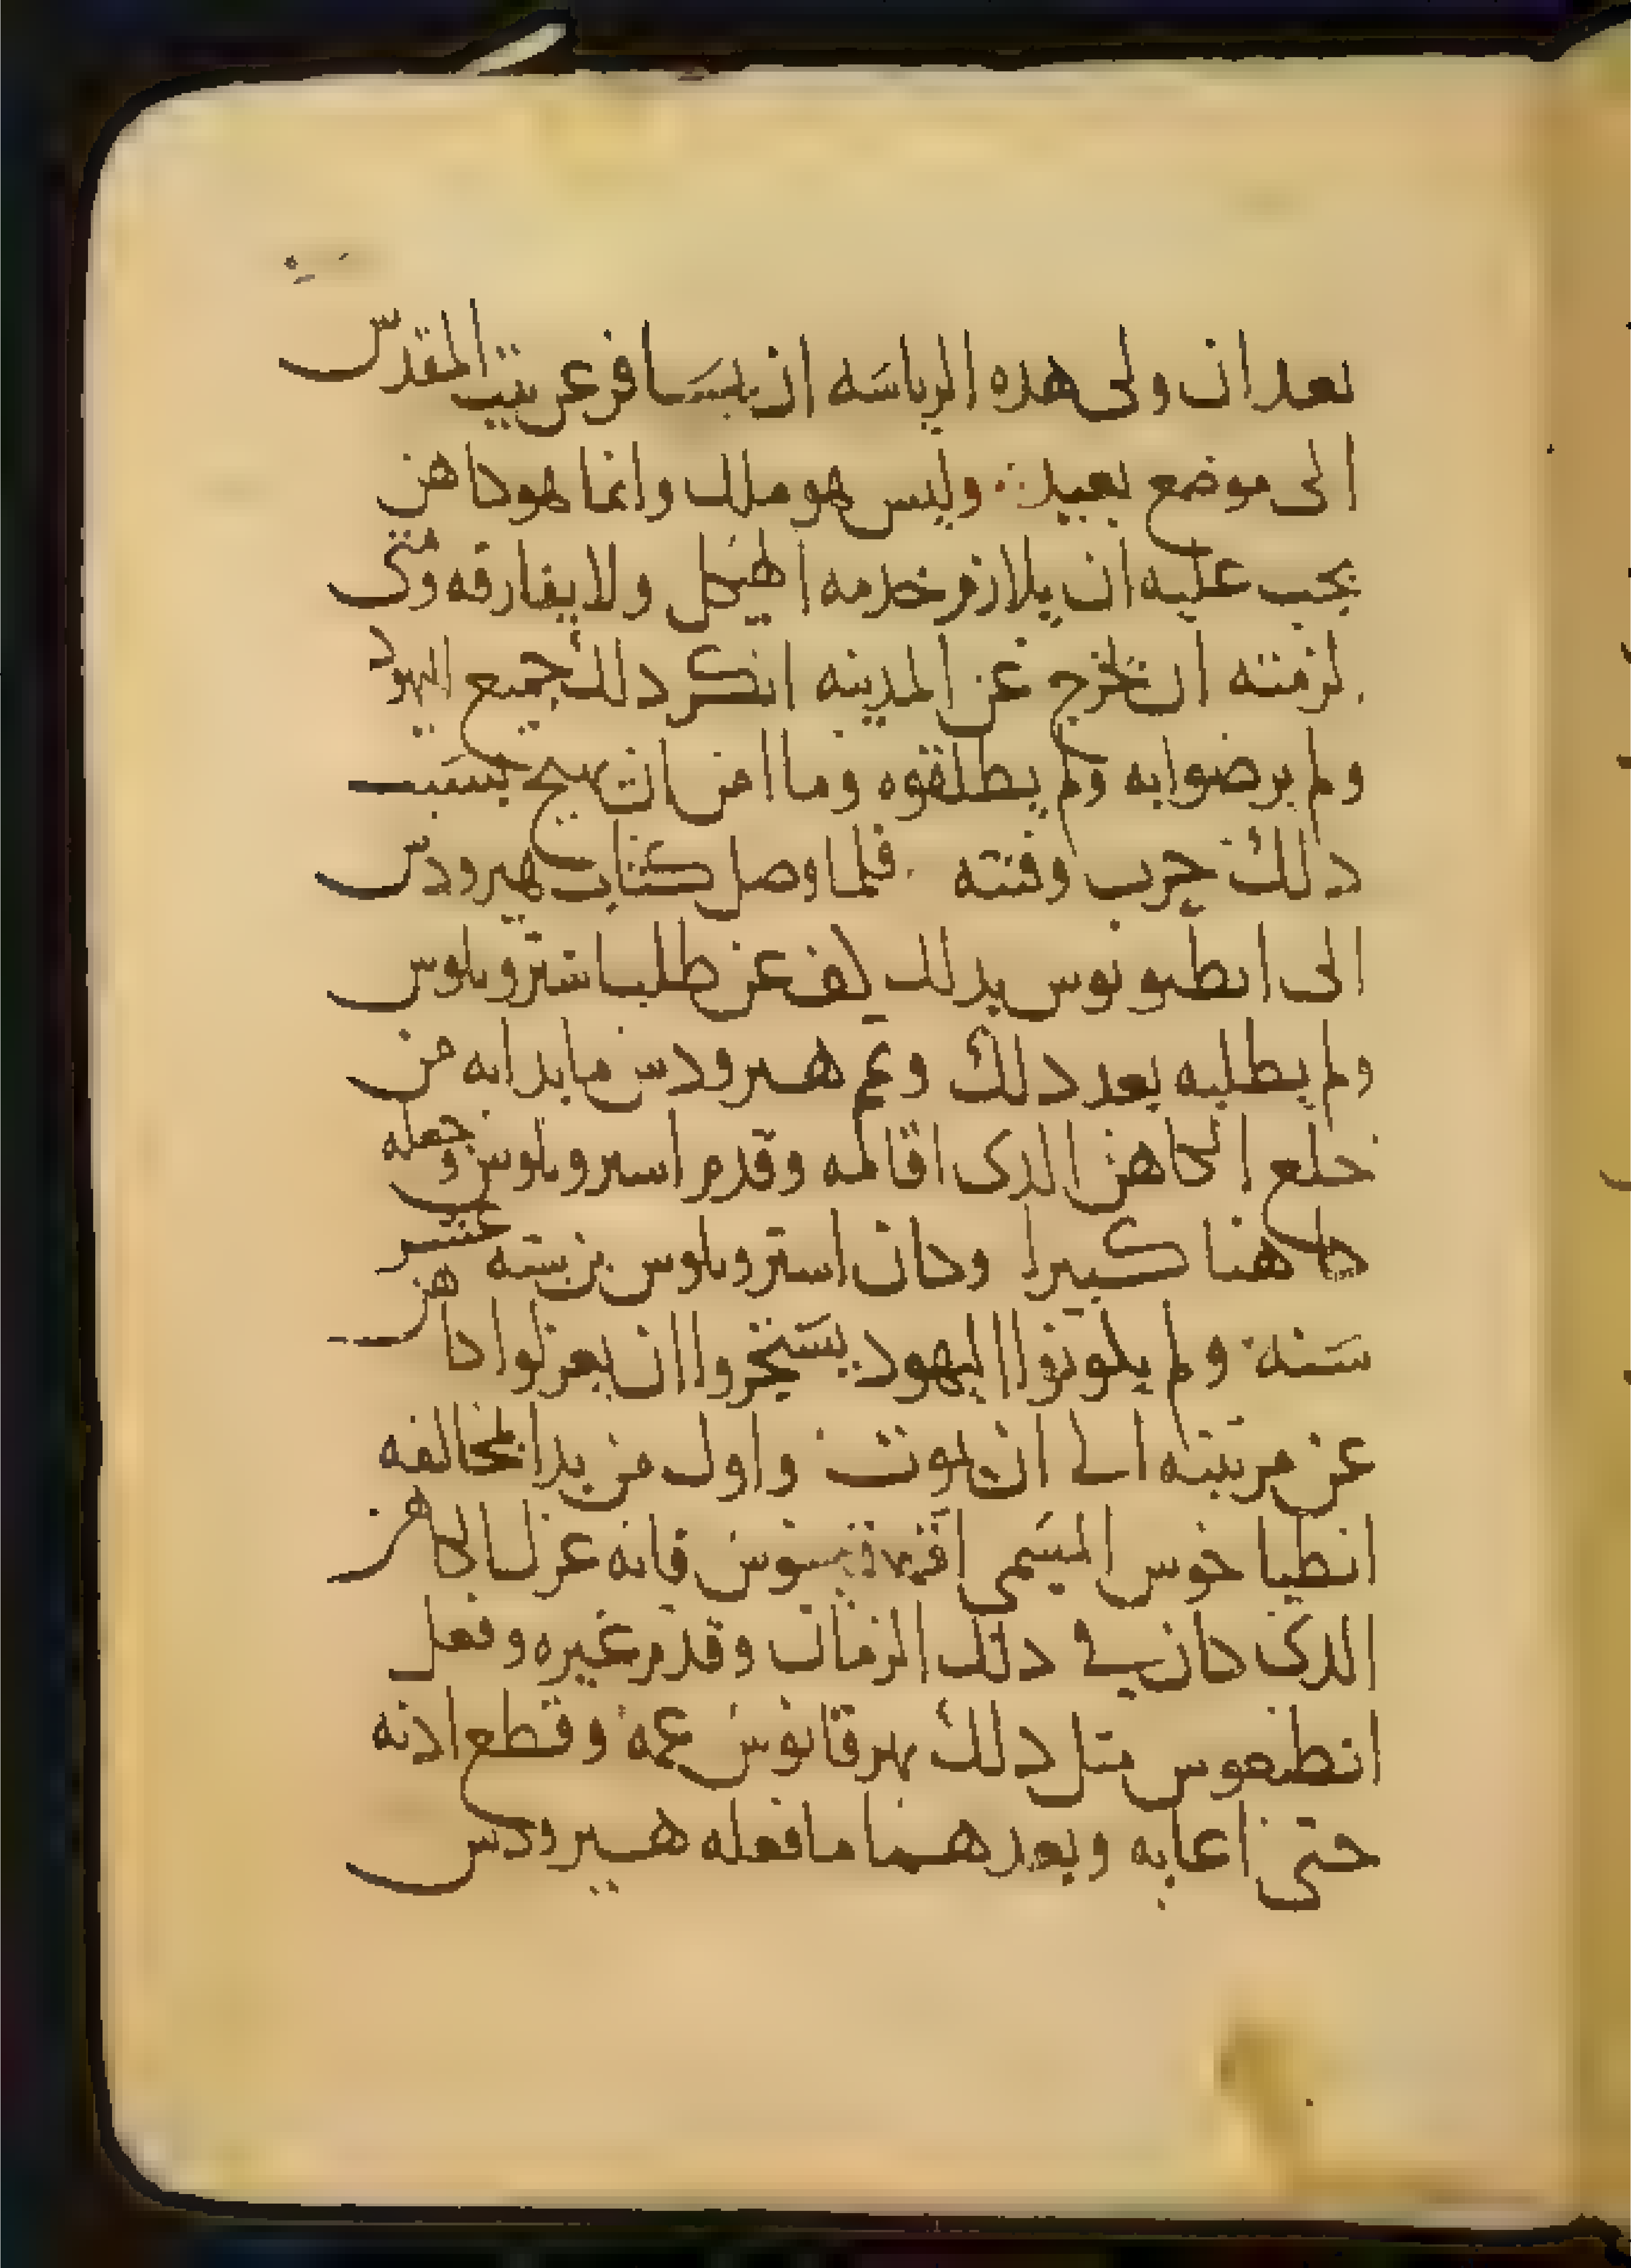 بعد ان ولى هده الرياسه ان يسافر عن بيت المقدس
الى موضع بعيد وليس هو ملك وانما هو كاهن
يجب عليه ان يلازم خدمه الهيكل ولا يفارقه ومتى
لزمته ان تخرج عن المدينه انكر دلك جميع اليهود
ولم يرضوا به ولم يطلقوه وما امن ان يهيج بسبب
دلك حرب وفتنه فلما وصل كتاب هيرودس
الى انطونيوس بدلك كف عن طلب استروبلوس
ولم يطلبه بعد دلك وتم هيرودس ما بدا به من
خلع الكاهن الدى اقامه وقدم استروبلوس وجعله
كاهنا كبيرا وكان استروبلوس بن سته عشر
سنه ولم يكونوا اليهود يستخيروا ان يعزلوا كاهن
عن مرتبته الى ان يموت واول من بدا بمخالفه
انطياخوس المسمى فانه عزل الكاهن
الدى كان في دلك الزمان وقدم غيره وفعل
مثل دلك بهرقانوس عمه وقطع ادنه
حتى اعابه وبعدهما ما فعله هيرودس